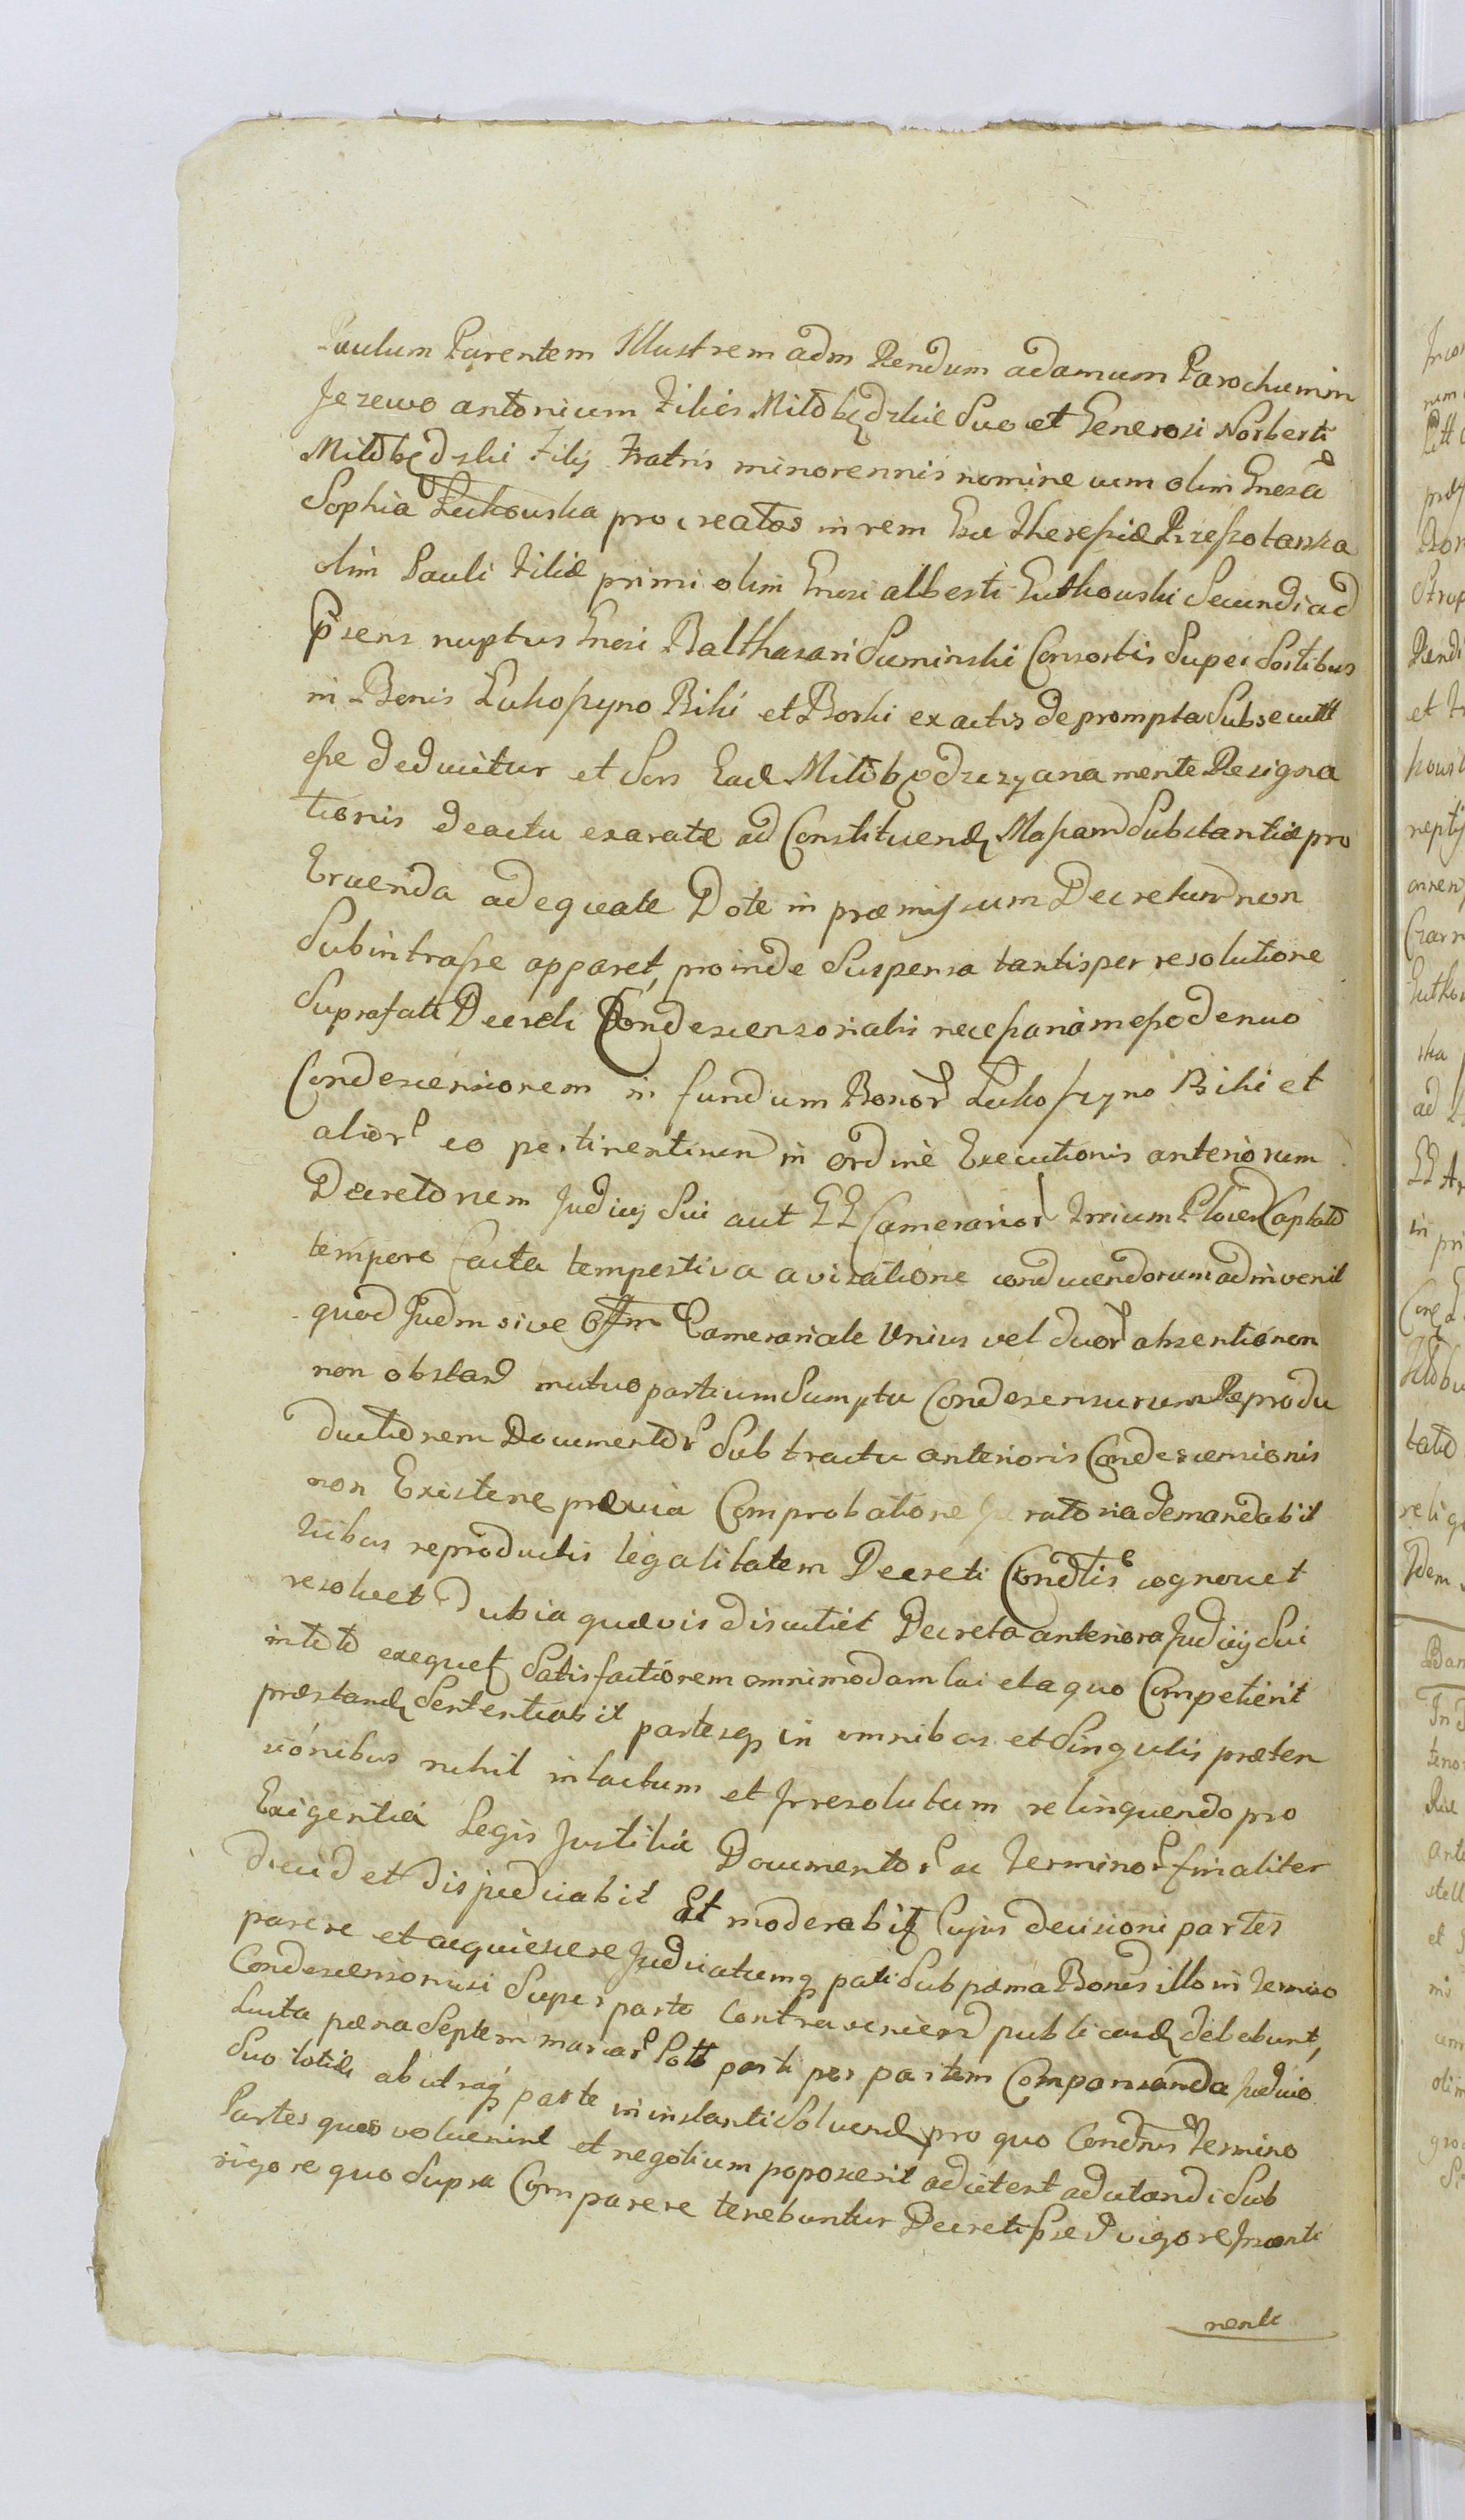 Paulum Parentem Illustrem adm Rendum adamum Parochum in
Jezewo antonium Filios Miłobędzkie Suo et Generosi Norberti
Miłobędzki Filij Fratris minorennis nomine cum olim Gnosa
Sophia Łukowska procreatos in rem Gsae Theressiae Przeszotarska
olim Pauli Filiae primi olim Gnosi alberti Gutkowski Secundi ad
Psens nuptus Gnosi Balthasari Suminski Consortis Super Sortibus
in Bonis Łukoszyno Biki et Borki exactis deprompta Subsecutt
esse deducitur et Sors Ead Miłobędzczyana mente Resigna
tionis deactu exaratae ad Constituend Massam Substantiae pro
Eruenda adequate Dote in praemissum Decretum non
Subintrasse apparet, proinde Suspensa tantisper resolutione
Suprafati Decreti Condescensorialis necessariam esse denuo
Condescensionem in fundum Bonor Łukoszyno Biki et
alior eo pertinentium in ordine Executionis anteriorum
Decretorum Judicij Sui aut GG Camerarior Trrium Plocen Captato
tempore facta tempestiva avisatione conducendorum adinvenit
quod Judm sive Offm Camerariale Unius vel duor absentia non
non obstand mutuo partium Sumptu Condescensurum Reprodu
ductionem Documentor Sub tractu anterioris Condescensionis
non Existenc praevia Comprobatione Juratoria demandabit
Quibus reproductis legalitatem Decreti Condtis cognovet
resolvet Dubia quaevis discutiet Decreta anteriora Judicij Sui
in toto exequet Satisfactionem omnimodam cui et a quo Competierit
praestand Sententiabit partesq in omnibus et Singulis praeten
sionibus nihil intactum et Irresolutum relinquendo pro
Exigentia Legis Justitia Documentor ac Terminor finaliter
decid et disjudicabit Et moderabit Cujus decisioni partes
parere et acquiescere Judicatumq pati Sub paena Bonis illo in Termino
Condescensorusi Super parte Contraveniend publicand debebunt,
Luita paena Septem marcar Poll parti per partem Comparsanda Judicio
Suo totid ab utraq parte in instanti Solvend pro quo Condnis Termino
Partes quas voluerint et negotium poposcerit adcitent adcitandi Sub
rigore quo Supra Comparere tenebuntur Decreti Psed vigore Inconti
nenti